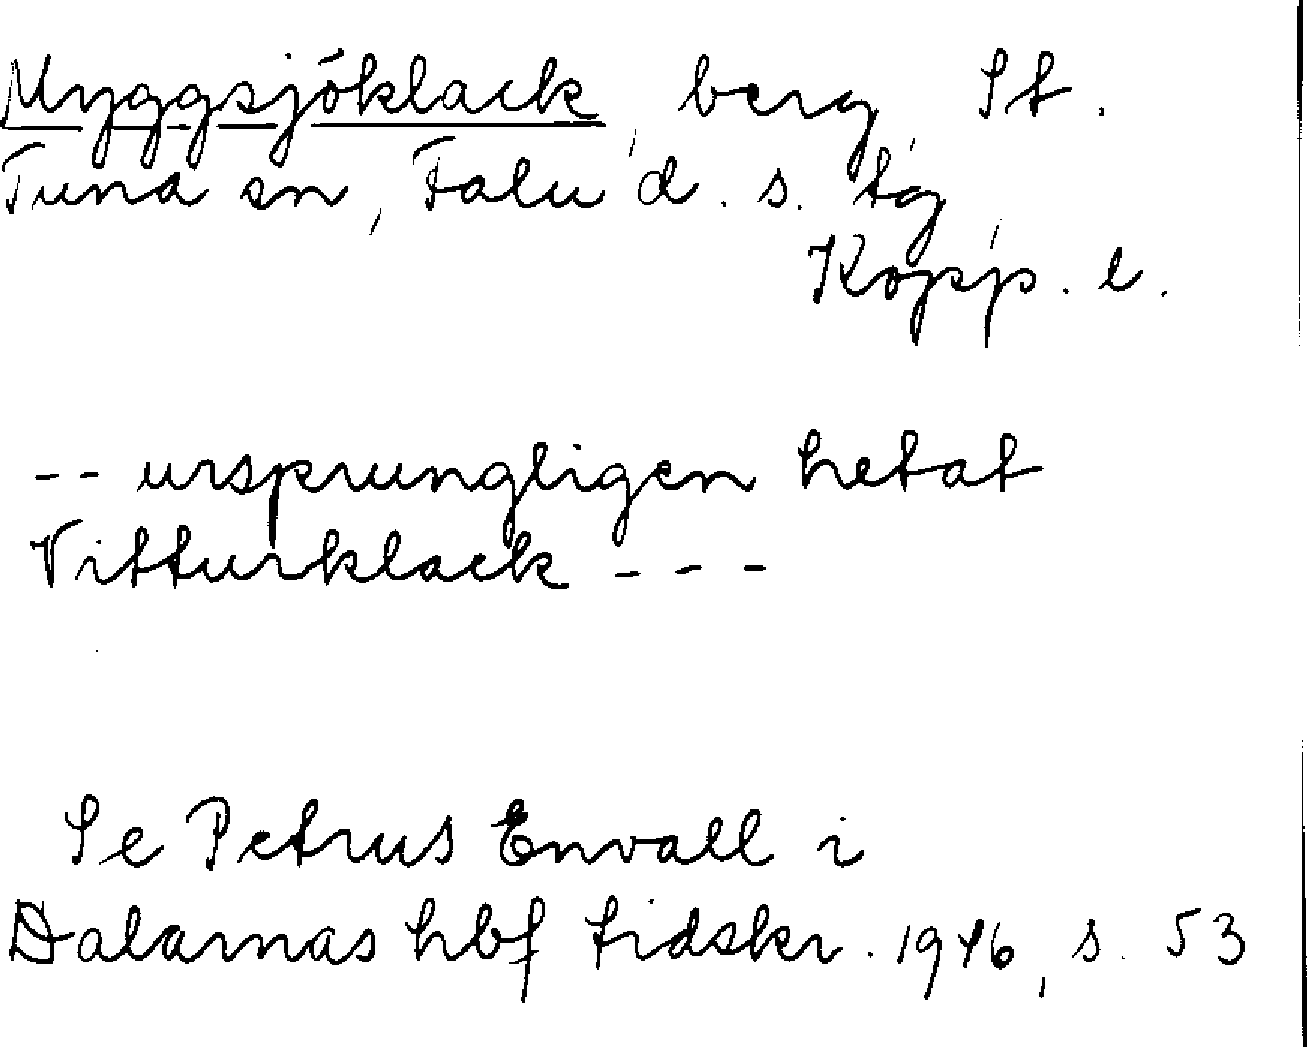 Myggsjöklack, berg, St.
Tuna sn, Falu d. s. tg,
Kopp. l.
-- ursprungligen hetat
Vitturklack - - -
Se Petrus Envall i
Dalarnas hbf tidskr. 1946, s. 53